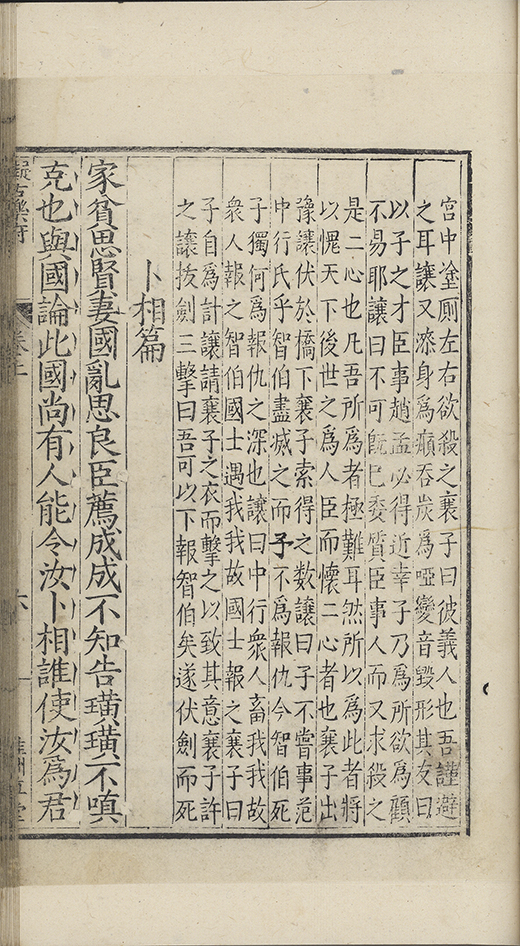 宮中塗厠左右欲殺之襄子曰彼義人也吾謹避
之耳讓又漆身爲癩吞炭爲啞變音毀形其友曰
以子之才臣事趙孟必得近幸子乃爲所欲爲顧
不易耶讓曰不可旣已委質臣事人而又求殺之
是二心也凡吾所爲者極難耳然所以爲此者將
以愧天下後世之爲人臣而懷二心者也襄子出
豫讓伏於橋下襄子索得之数讓曰子不嘗事范
中行氏乎智伯盡滅之而子不爲報仇今智伯死
子獨何爲報仇之深也讓曰中行衆人畜我我故
衆人報之智伯國士遇我我故國士報之襄子曰
子自爲計讓請襄子之衣而擊之以致其意襄子許
之讓拔劍三擊曰吾可以下報智伯矣遂伏劍而死
卜相篇
家貧思賢妻國亂思良臣薦成成不知告璜璜不嗔
克也與國論此國尚有人能令汝卜相誰使汝爲君
擬古樂府
卷上
六